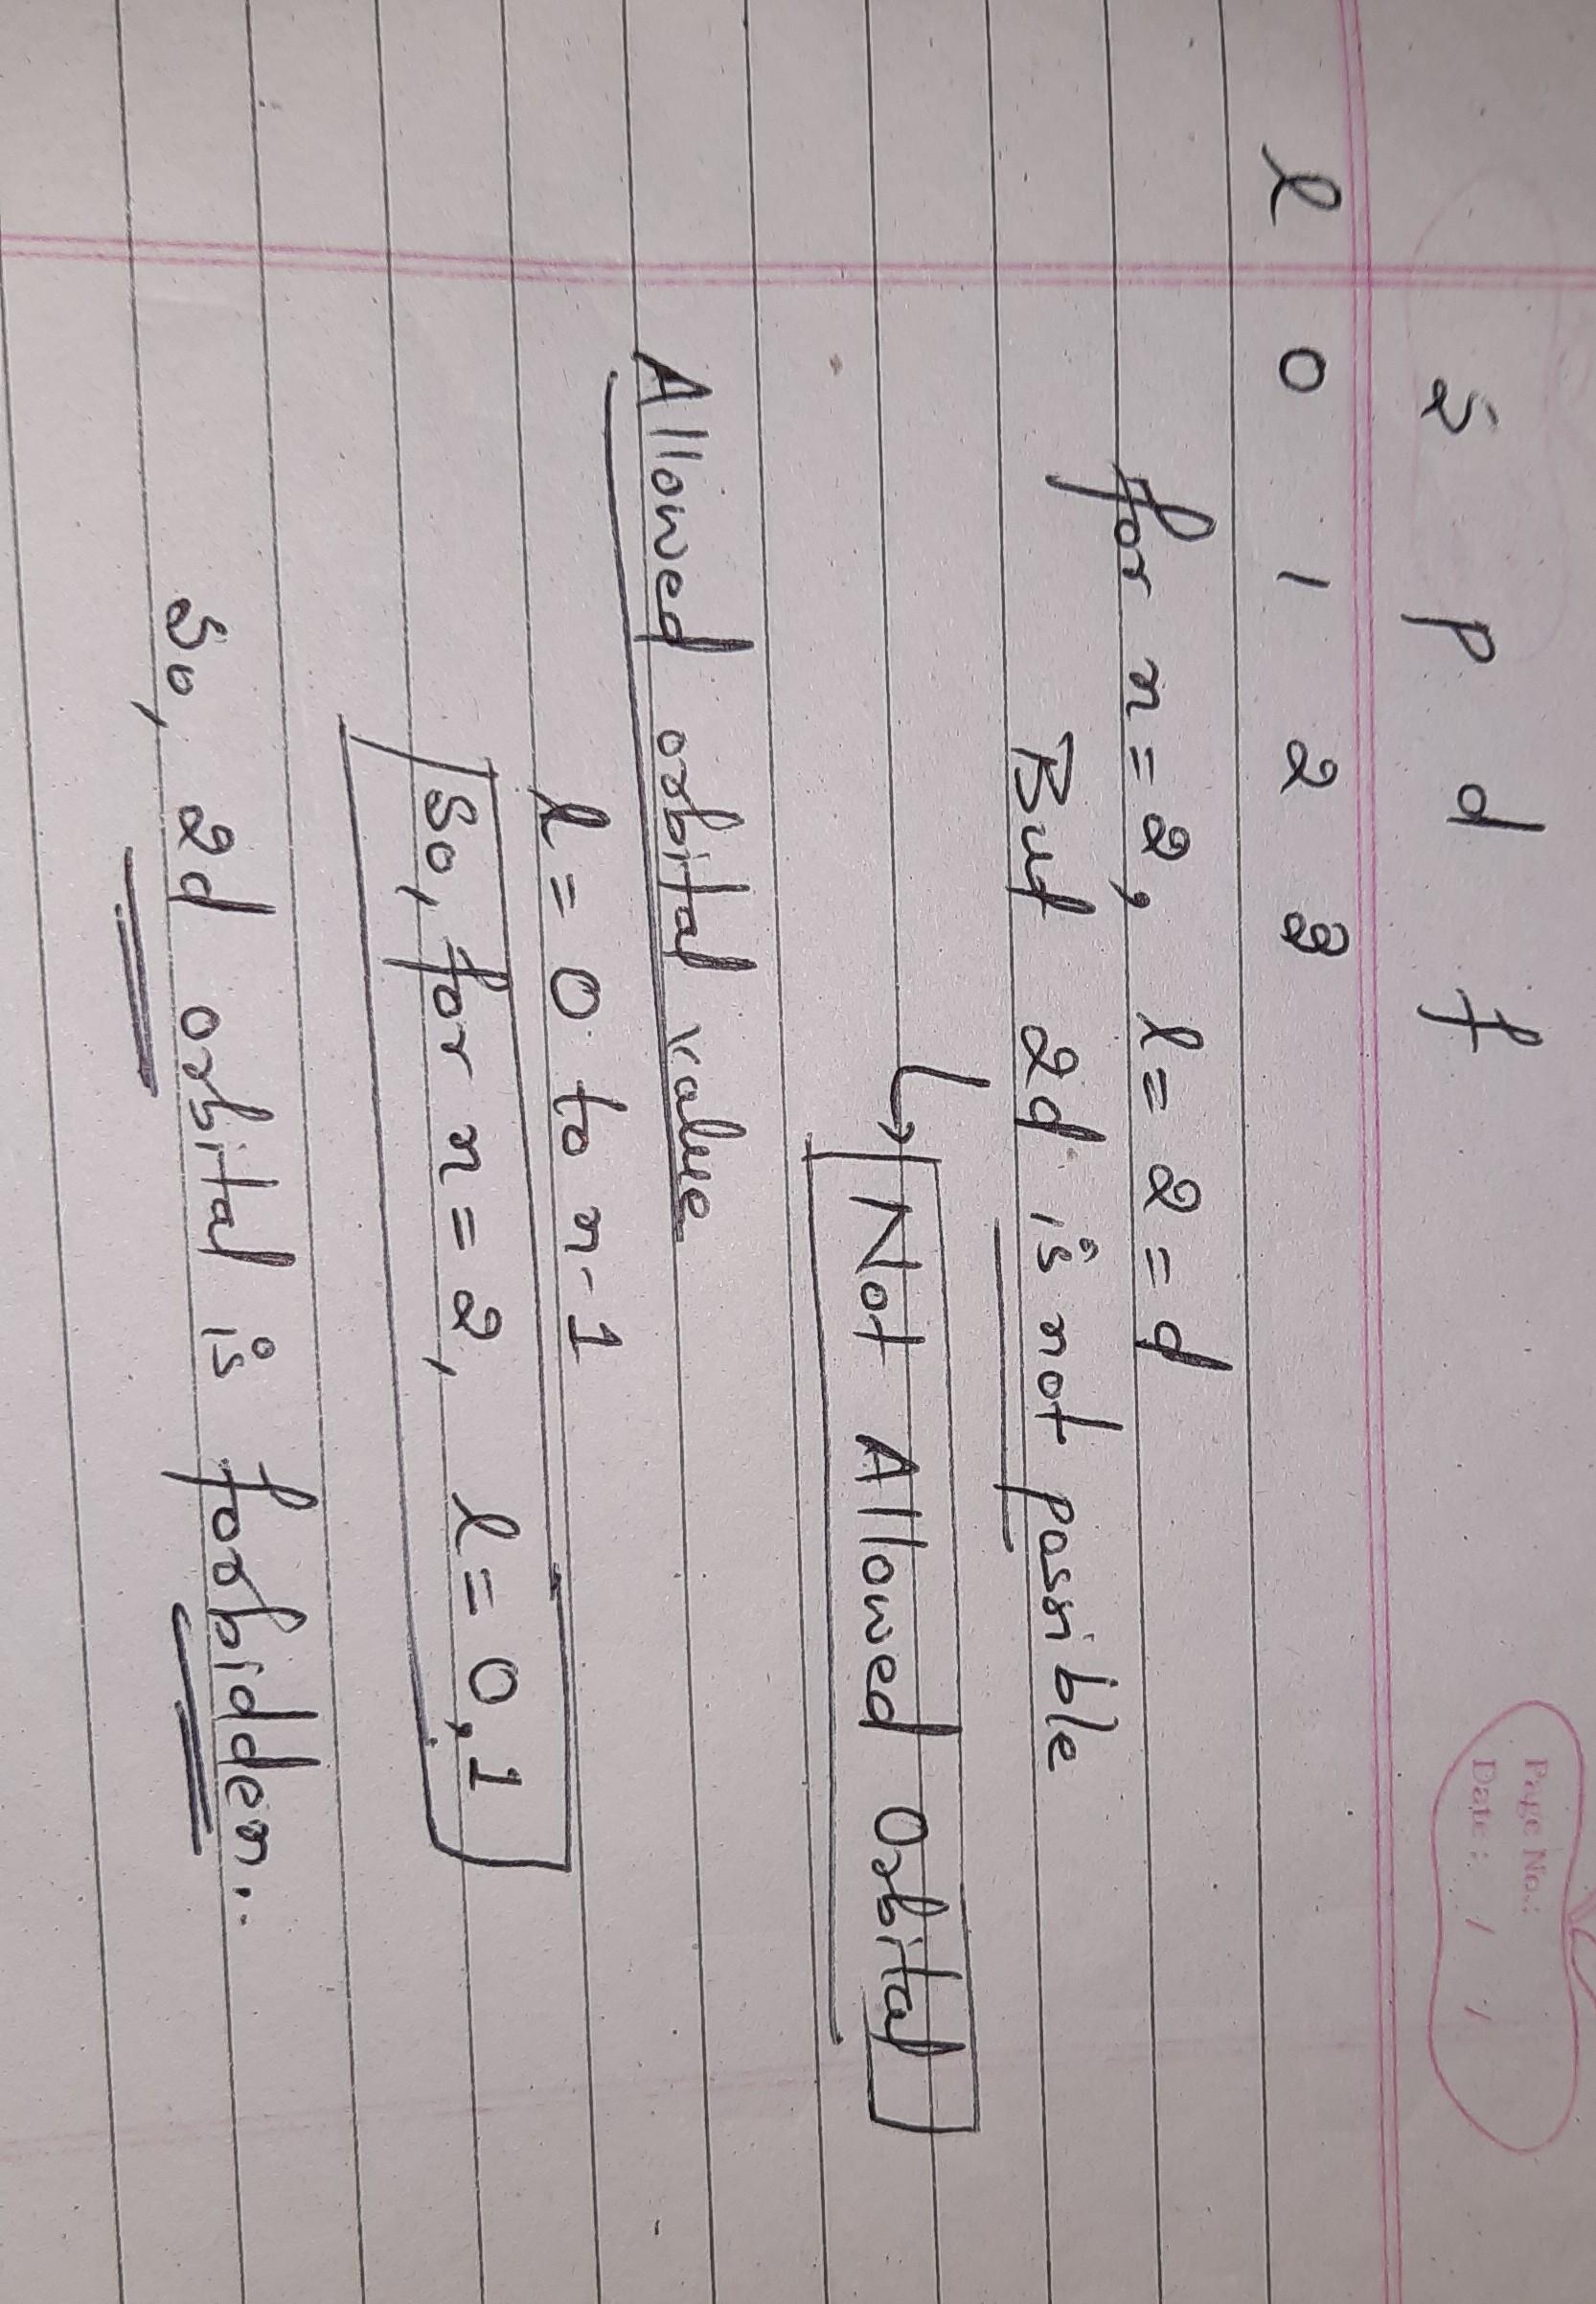 Page No.:
Date: / /
s p d f
l 0 1 2 3
for n=2, l=2=d
But 2d is not possible
↳ Not Allowed Orbital
Allowed orbital value
l=0 to n-1
So, for n=2, l=0,1
So, 2d orbital is forbidden..